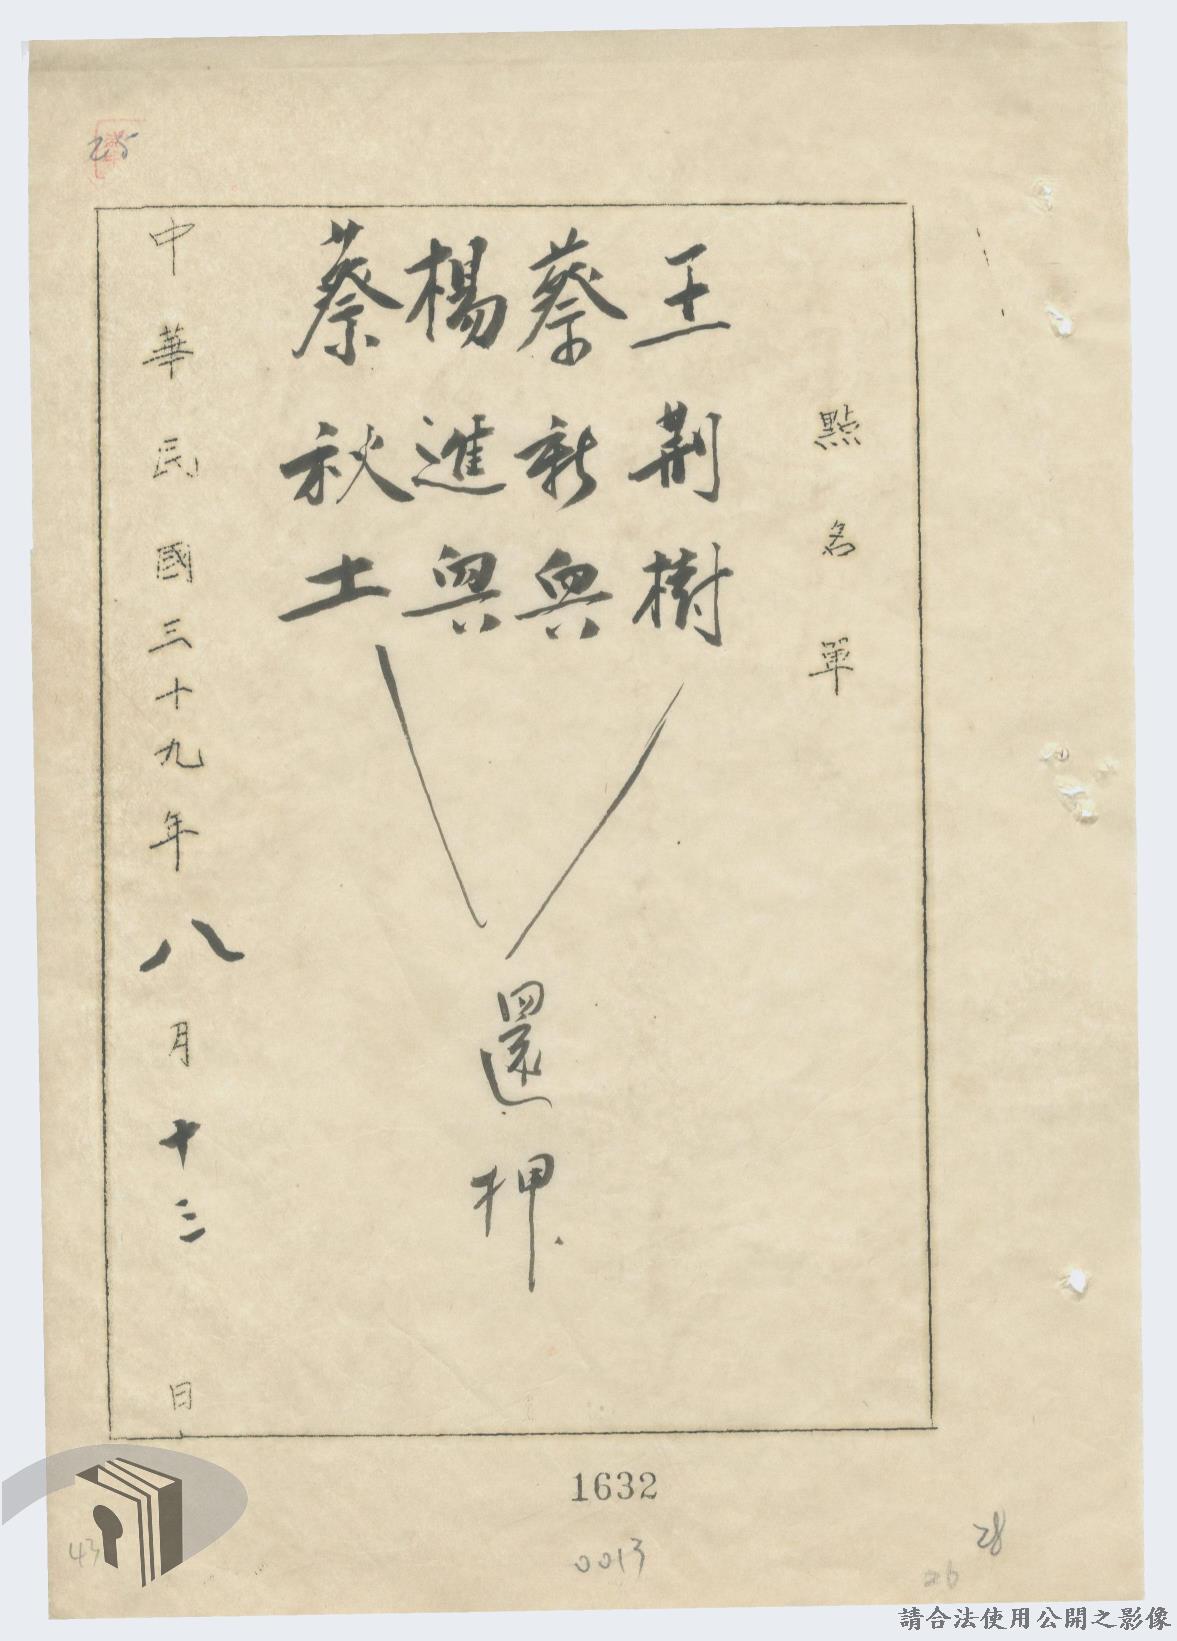 點名單
王荆樹
蔡新興
楊進興
蔡秋土
還押
中華民國三十九年八月十三日
25
1632
0013
28
26
43
請合法使用公開之影像